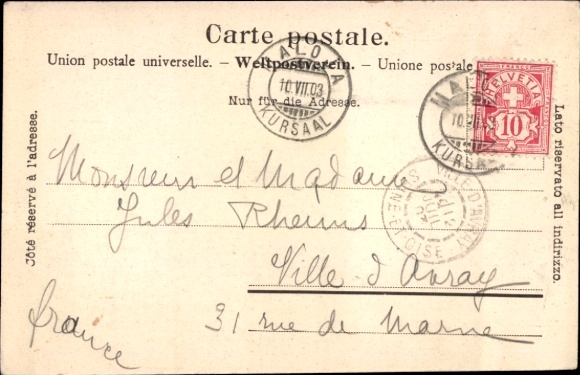 Carte postale.
Union postale universelle. – Weltpostverein. – Unione postale
Nur für die Adresse.
MALOJA
10.VII.03
KURSAAL
MALOJA
10.VII.03
KURSAAL
FRANCO
HELVETIA
10
VILLE-D'AVRAY
SEINE-ET-OISE
Côté réservé à l'adresse.
Lato riservato all indirizzo.
Monsieur et Madame
Jules Rheims
Ville d'Avray
31 rue de Marne
france